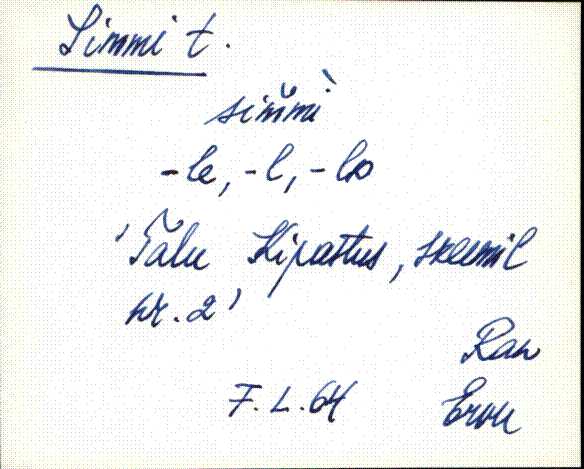 Simmi t.
sim̆mì
-le, -l, -lt
'Talu Kipastus, skeemil
nr. 2'
Ran
F. L. 64
Ervu